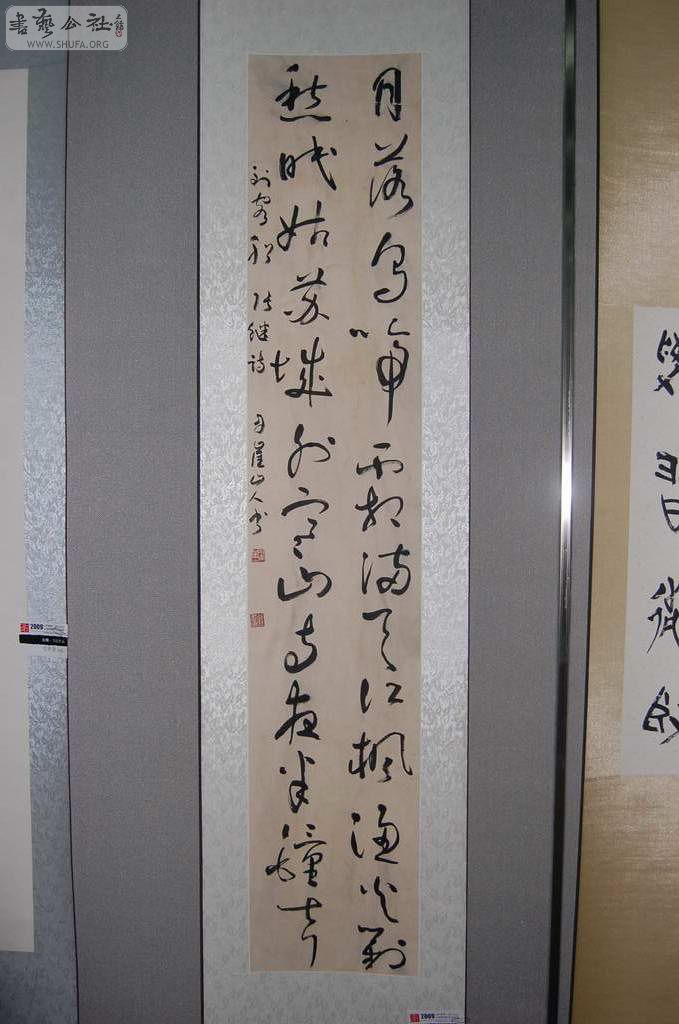 書藝公社
WWW.SHUFA.ORG
月落烏啼霜滿天江楓漁火對
愁眠姑苏城外寒山寺夜半鐘声
到客船 張繼詩 丹崖山人書
2009
2009